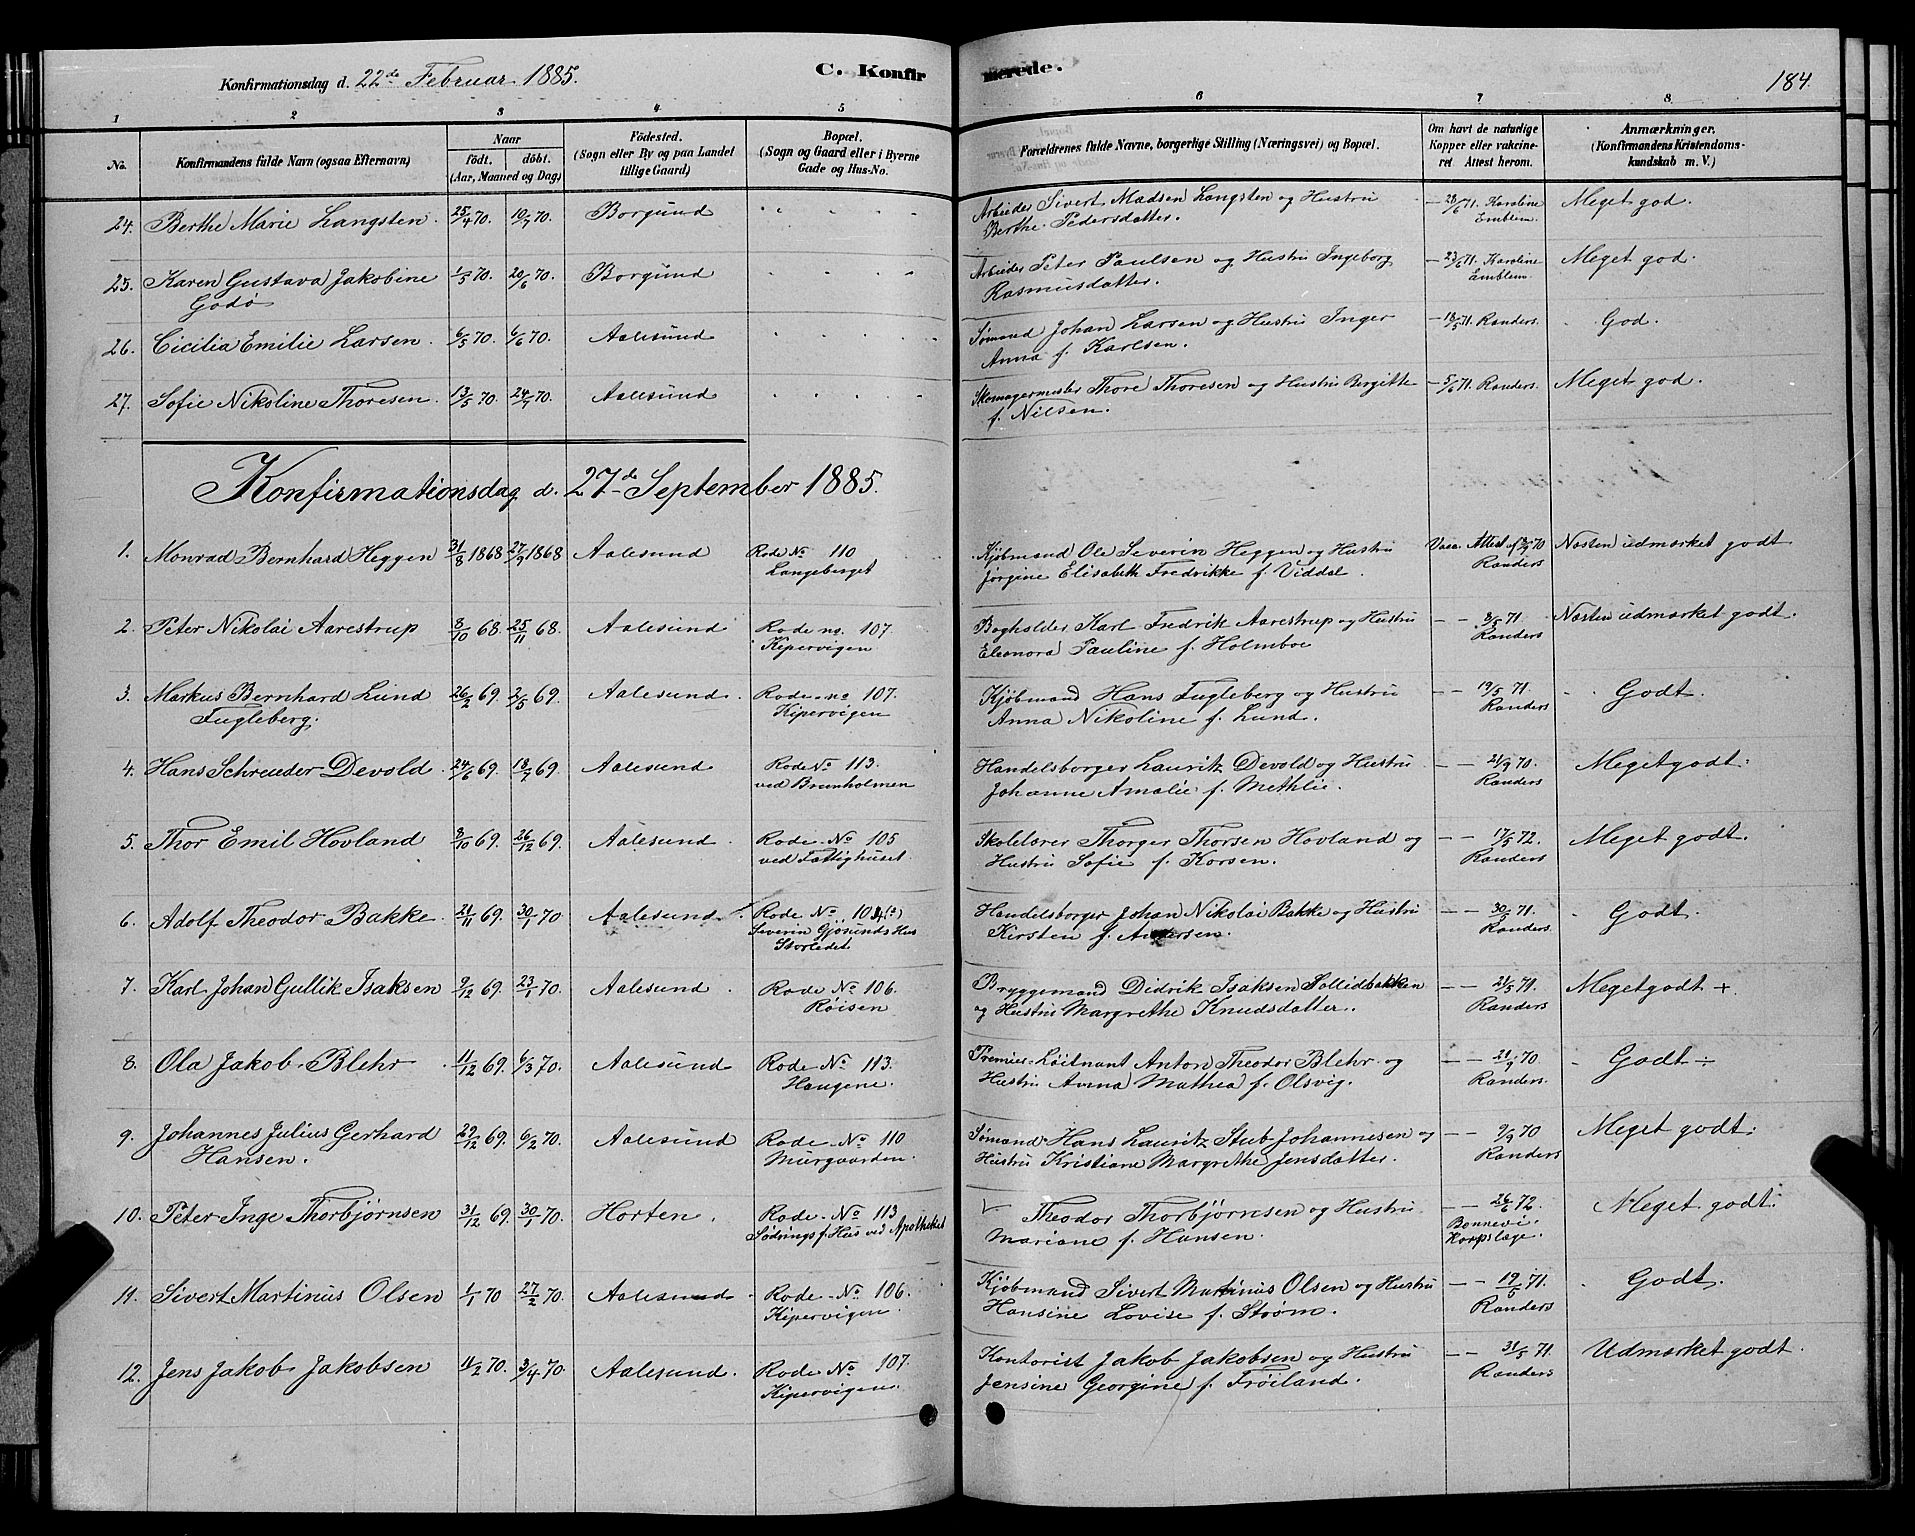 Konfirmationsdag d. 22de Februar 1885.
C. Konfirmerede.
184.
1 2 3 4 5 6 7 8
No. Konfirmandens fulde Navn (ogsaa Efternavn) Naar födt. döbt. (Aar, Maaned og Dag) Födested. (Sogn eller By og paa Landet tillige Gaard) Bopæl. (Sogn og Gaard eller i Byerne Gade og Hus-No. Forældrenes fulde Navne, borgerlige Stilling (Næringsvei) og Bopæl. Om havt de naturlige Kopper eller vakcineret Attest herom. Anmærkninger. (Konfirmandens Kristendomskundskab m. V.)
24. Berthe Marie Langsten. 25/4 70. 10/7 70. Borgund " " " " Arbeider Sivert Madsen Langsten og Hustru — 28/6 71. Karoline Meget god.
Berthe Pedersdatter. Emblem.
25. Karen Gustava Jakobine 1/5 70. 20/6 70. Borgund " " " Arbeider Peter Paulsen og Hustru Ingeborg — 23/6 71. Karoline Meget god.
Godø Rasmusdatter. Emblem.
26. Cicilia Emilie Larsen. 6/5 70. 6/6 70. Aalesund " " " " Sømand Johan Larsen og Hustru Inger — 18/5 71. Randers. God.
Anna f. Karlsen.
27. Sofie Nikoline Thoresen. 13/5 70. 24/7 70. Aalesund " " " " Skomagermester Thore Thoresen og Hustru Bergitte — 5/6 71. Randers. Meget god.
f. Nilsen.
Konfirmationsdag d. 27de September 1885.
1. Monrad Bernhard Heggen 31/8 1868 27/9 1868 Aalesund Rode No 110 Kjøbmand Ole Severin Heggen og Hustru Vacc. Attest 70 Næsten udmærket godt
Langeberget Jørgine Elisabeth Fredrikke f. Viddal. Randers
2. Peter Nikolai Aarestrup 8/10 68. 25/11 68. Aalesund Rode no. 107. Bogholder Karl Fredrik Aarestrup og Hustru — — 71 Næsten udmærket godt.
Kipervigen Eleonora Pauline f. Holmboe Randers
3. Markus Bernhard Lund 26/2 69. 2/5 69. Aalesund. Rode no 107. Kjøbmand Hans Fugleberg og Hustru — — 19/5 71. Godt.
Fugleberg. Kipervigen Anna Nikoline f. Lund. Randers
4. Hans Schreuder Devold. 24/6 69. 18/7 69. Aalesund Rode No 113. Handelsborger Lauritz Devold og Hustru — — 21/9 70. Meget godt.
ved Brunholmen Johanne Amalie f. Methlie. Randers
5. Thor Emil Hovland 8/10 69. 26/12 69. Aalesund. Rode No 105 Skolelærer Thorger Thorsen Hovland og — — 17/5 72. Meget godt.
ved Fattighuset. Hustru Sofie f. Korsen. Randers
6. Adolf Theodor Bakke. 21/11 69. 30/1 70 Aalesund Rode No 104(a) Handelsborger Johan Nikolai Bakke og Hustru — — 30/5 71. Godt.
Severin Gjøsunds Hus Kirsten f. Andersen. Randers
Storledet
7. Karl Johan Gullik Isaksen 9/12 69. 23/1 70. Aalesund. Rode No 106. Bryggemand Didrik Isaksen Sollidbakken — — 21/5 71. Meget godt +.
Røisen og Hustru Margrethe Knudsdatter. Randers
8. Ola Jakob Blehr. 11/12 69. 6/3 70. Aalesund Rode No 113. Premier-Løitnant Anton Theodor Blehr og — — 21/9 70 Godt ÷
Haugene. Hustru Anna Mathea f. Olsvig. Randers.
9. Johannes Julius Gerhard 29/12 69. 6/2 70. Aalesund Rode No 110 Sømand Hans Lauritz Stub Johannesen og — — 9/9 70 Meget godt.
Hansen. Murgaarden. Hustru Kristiane Margrethe Jensdatter. Randers
10. Peter Inge Thorbjørnsen 31/12 69. 30/1 70. Horten. Rode No 113 Theodor Thorbjørnsen og Hustru — — 26/6 72. Meget godt.
Sødrings f. Hus ved Apotheket Mariane f. Hansen. Bonnevi
Korpslæge.
11. Sivert Martinus Olsen 1/1 70 27/2 70. Aalesund. Rode No 106. Kjøbmand Sivert Martinus Olsen og Hustru — — 19/5 71. Godt.
Kipervigen. Hansine Lovise f. Strøm. Randers
12. Jens Jakob Jakobsen 11/2 70. 3/4 70 Aalesund. Rode No 107. Kontorist Jakob Jakobsen og Hustru — — 31/5 71. Udmærket godt.
Kipervigen. Jensine Georgine f. Frøiland. Randers